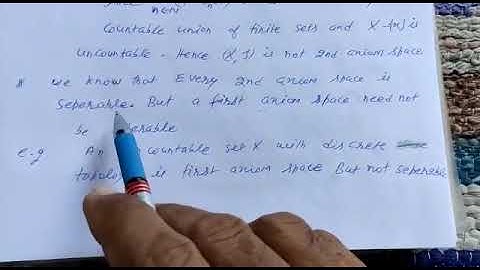 countable union of finite sets and X-{x} is
uncountable - Hence (X, J) is not 2nd axiom space
# we know that Every 2nd axiom space is
seperable. But a first axiom space need not
be
e.g An countable set X with discrete
is first axiom space But not seperable